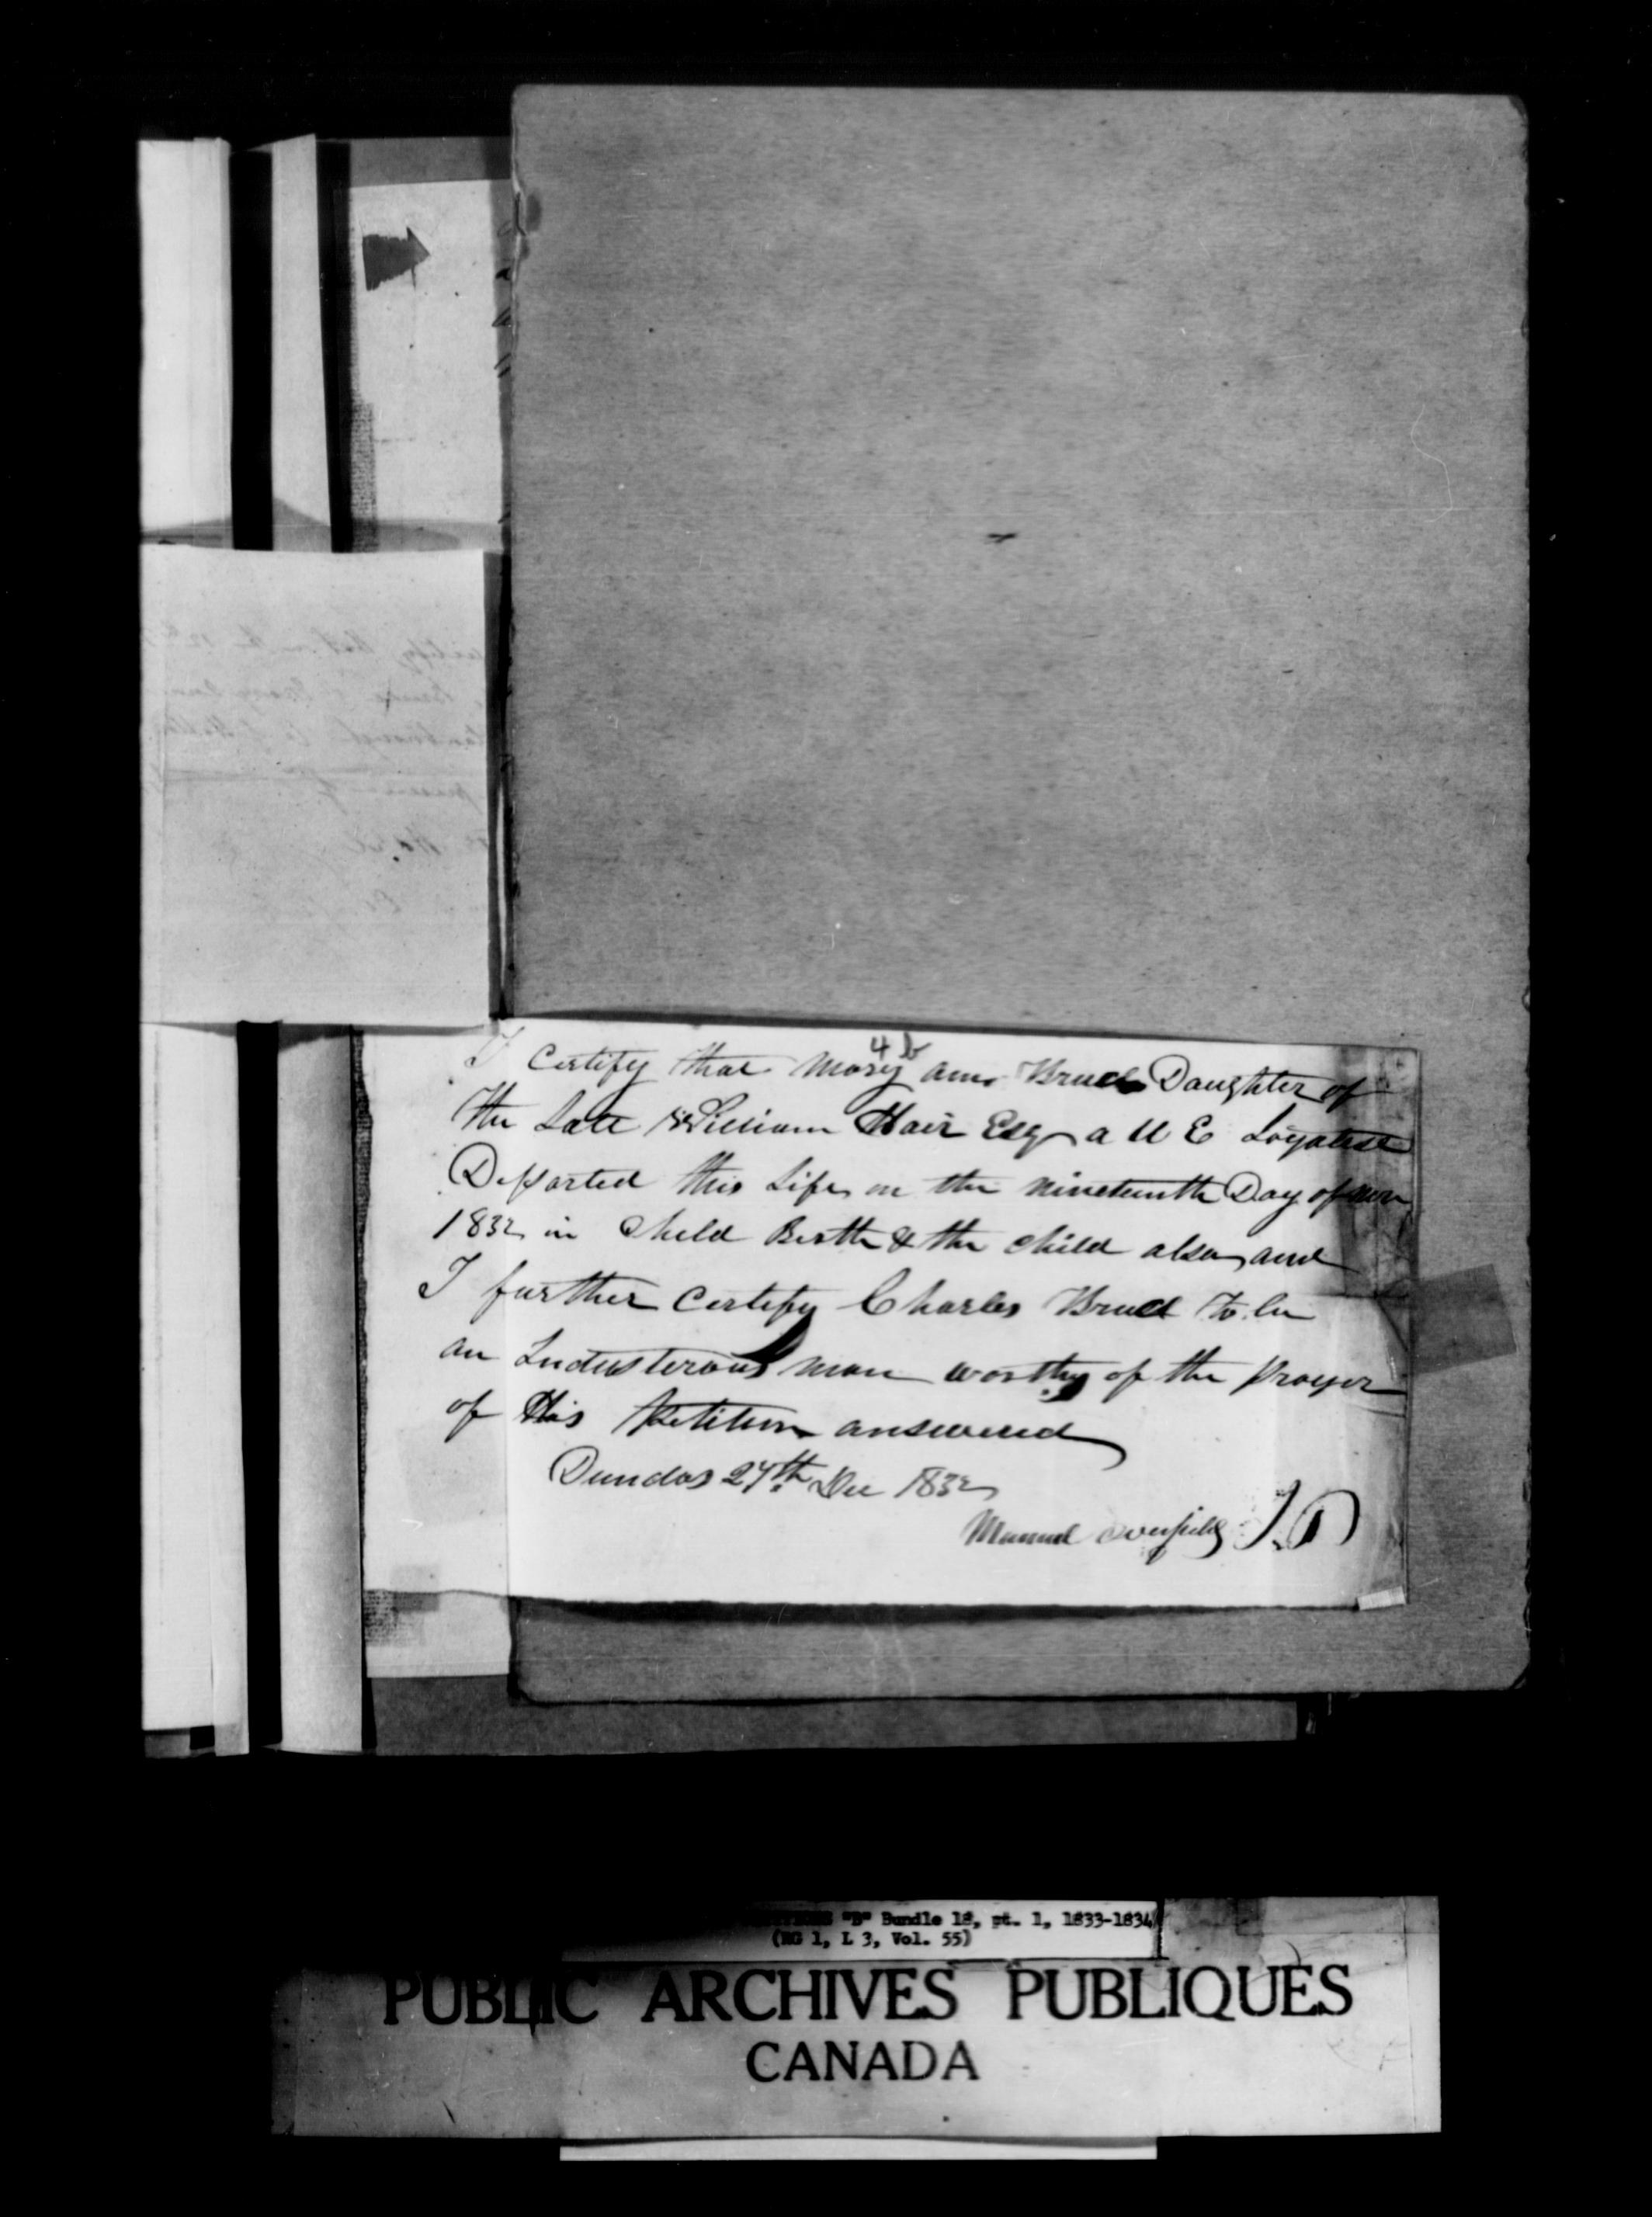 4 b
I Certify that Mary ann Bruce Daughter of
the Late William Hair Esqr a U E Loyalist
Departed this Life on the nineteenth Day of
1832 in Child Birth & the child also and
I further Certify Charles Bruce to be
an Industerous man worthy of the prayer
of His Petition answered
Dundas 27th Dec 1832
Manuel Overfield J.P
"B" Bundle 18, pt. 1, 1833-1834
(RG 1, L 3, Vol. 55)
PUBLIC ARCHIVES PUBLIQUES
CANADA